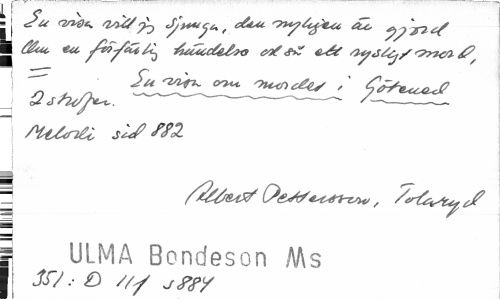 En visa vill jag sjunga, den nyligen är gjord
Om en förfärlig händelse också ett rysligt mord,
=
En visa om mordet i Götened
2 strofer.
Melodi sid 882
Albert Pettersson, Tolaryd
ULMA Bondeson Ms
351: D 11 s 884